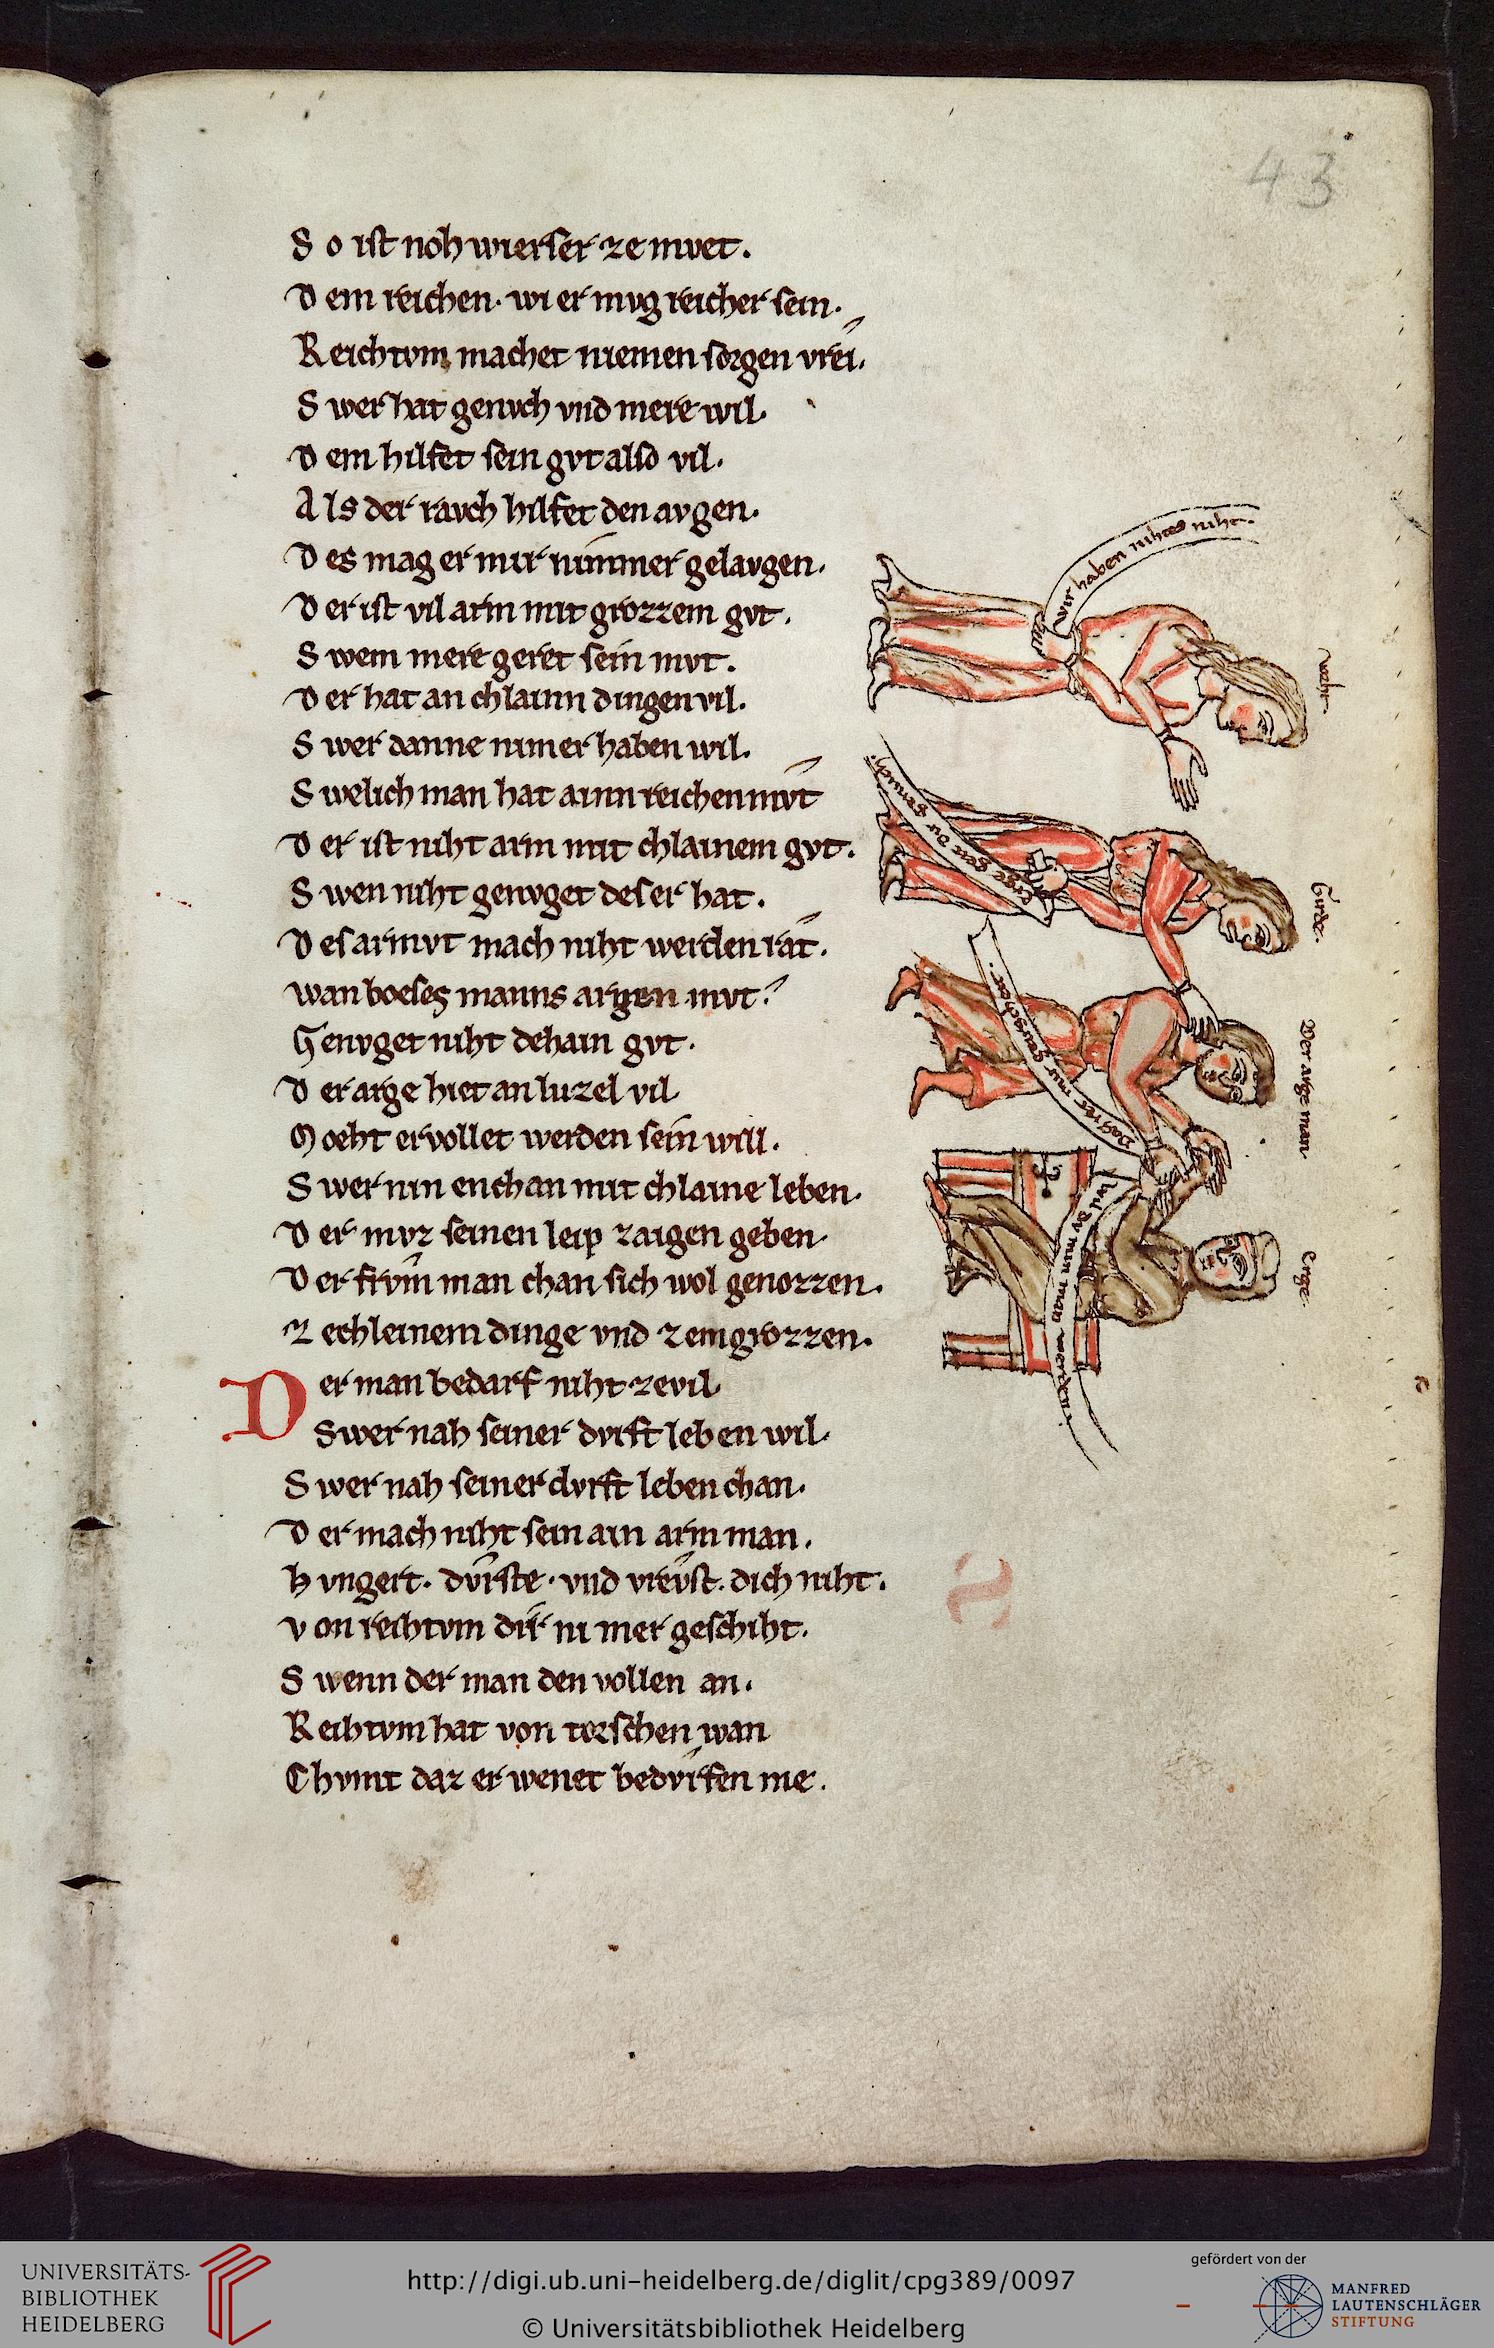 43
So ist noh wierser ze mvet.
Dem reichen. wi er mvg reicher sein.
Reichtvm machet niemen sorgen vrei.
Swer hat genvch vnd mere wil.
Dem hilfet sein gvt also vil.
Als der ravch hilfet den avgen.
Des mag er mir nimmer gelavgen.
Der ist vil arm mit grozzem gvt.
Swem mere geret sein mvt.
Der hat an chlainn dingen vil.
Swer danne nimer haben wil.
Swelich man hat ainn reichen mvt
Der ist niht arm mit chlainem gvt.
Swen niht genvget des er hat.
Des armvt mach niht werden rat.
wan boeses manns argen mvt.
Genvget niht dehain gvt.
Der arge hiet an luzel vil
Moeht ervollet werden sein will.
Swer nin enchan mit chlaine leben.
Der mvz seinen leip zaigen geben.
Der frvm man chan sich wol genozzen.
Zechleinem dinge vnd zem grozzen.
Der man bedarf niht zevil
Swer nah seiner dvrft leben wil.
Swer nah seiner dvrft leben chan.
Der mach niht sein ain arm man.
Hvngert. dvrste. vnd vrevst. dich niht.
Von reihtvm dir ni mer geschiht.
Swenn der man den vollen an.
Reihtvm hat von torschen wan
Chvmt daz er wenet bedvrfen me.
wir haben nihtes niht.
Girde.
Erge gen dir genuch.
Der arge man
Erge.
UNIVERSITÄTS-
BIBLIOTHEK
HEIDELBERG
http://digi.ub.uni-heidelberg.de/diglit/cpg389/0097
© Universitätsbibliothek Heidelberg
gefördert von der
MANFRED
LAUTENSCHLÄGER
STIFTUNG